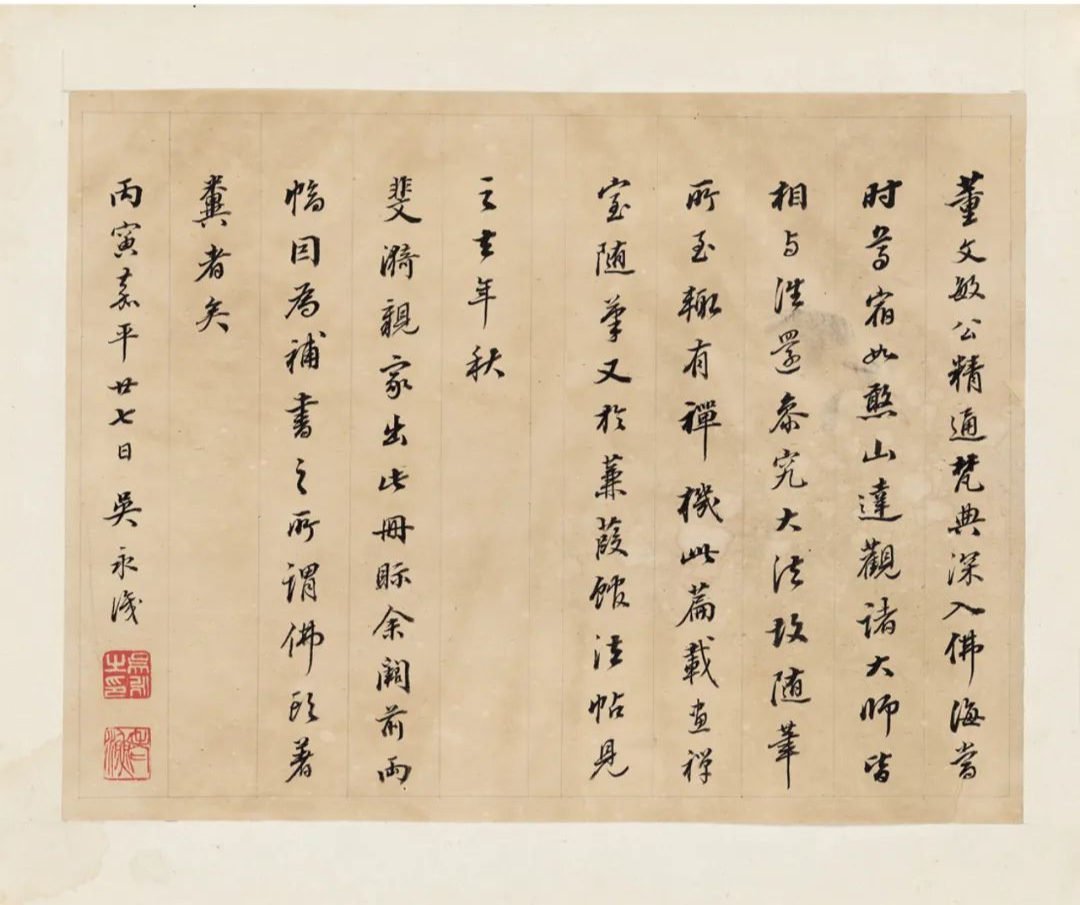 董文敏公精通梵典深入佛海當
时尊宿如憨山達觀諸大師皆
相与往還参究大法故随筆
所至輙有禪機此篇載画禅
室随筆又於蒹葭館法帖見
之去年秋
斐漪親家出此冊眎余闕前兩
幅因為補書之所謂佛頭著
糞者矣
丙寅嘉平廿七日吳永識